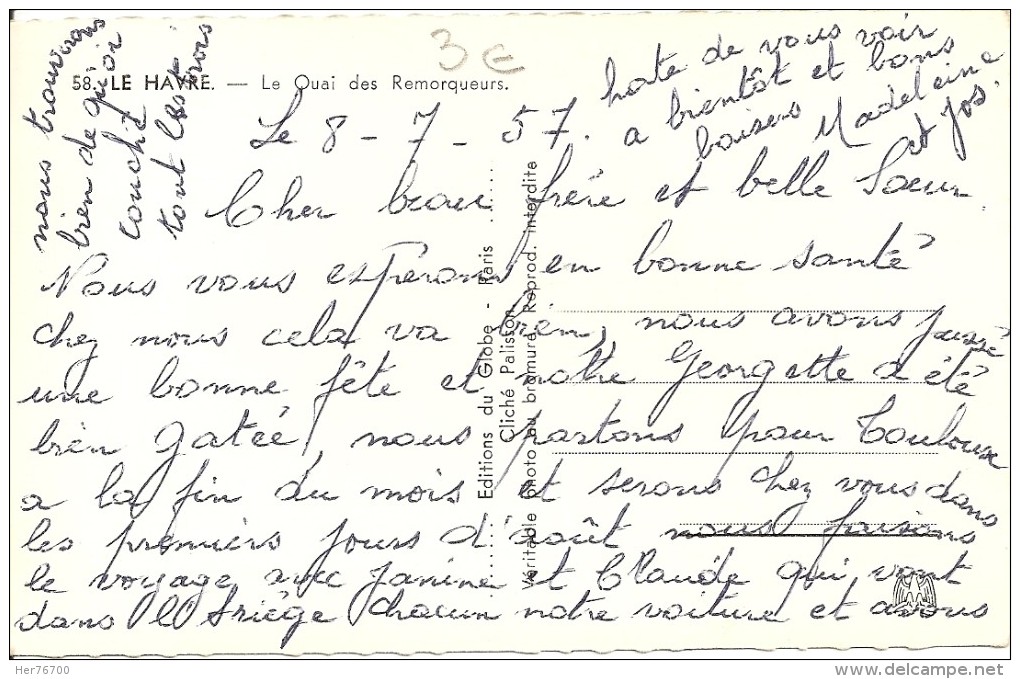 58. LE HAVRE. — Le Quai des Remorqueurs.
3€
Le 8 - 7 - 57.
Cher beau frère et belle Soeur
Nous vous esperons en bonne santé
chez nous cela va bien, nous avons passé
une bonne fête et notre Georgette a été
bien gatée, nous partons pour Toulouse
a la fin du mois et serons chez vous dans
les premiers jours d'août nous faisons
le voyage avec Janine et Claude qui vont
dans l'Ariège chacun notre voiture et avons
nous trouvions
bien de quoi
couché
tout les trois
hate de vous voir
a bientôt et bons
baisers Madeleine
et Jos.
Editions du Globe - Paris
Cliché Palisson
Véritable photo au bromure Reprod. interdite
Her76700
www.delcampe.net